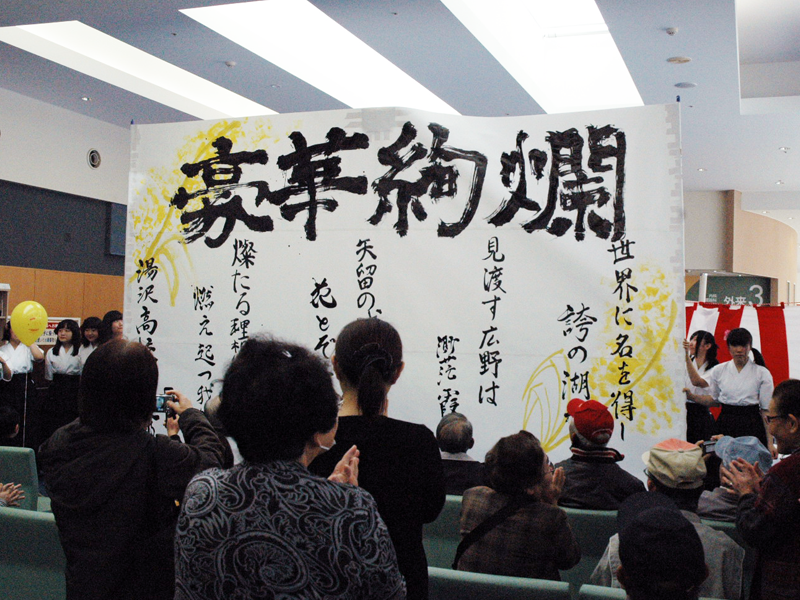 豪華絢爛
世界に名を得し
誇の湖
見渡す広野は
渺茫霞
矢留の
花とぞ
燦たる理想
燃え起つ我
湯沢高
外来3